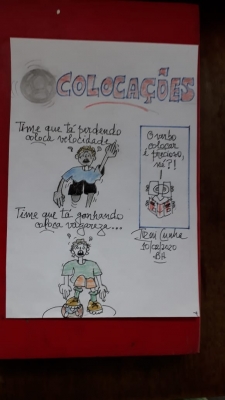 COLOCAÇÕES
Time que tá perdendo
coloca velocidade...
Time que tá ganhando
coloca vagareza...
O verbo
colocar
é precioso,
né?!
10/02/2020
-BH